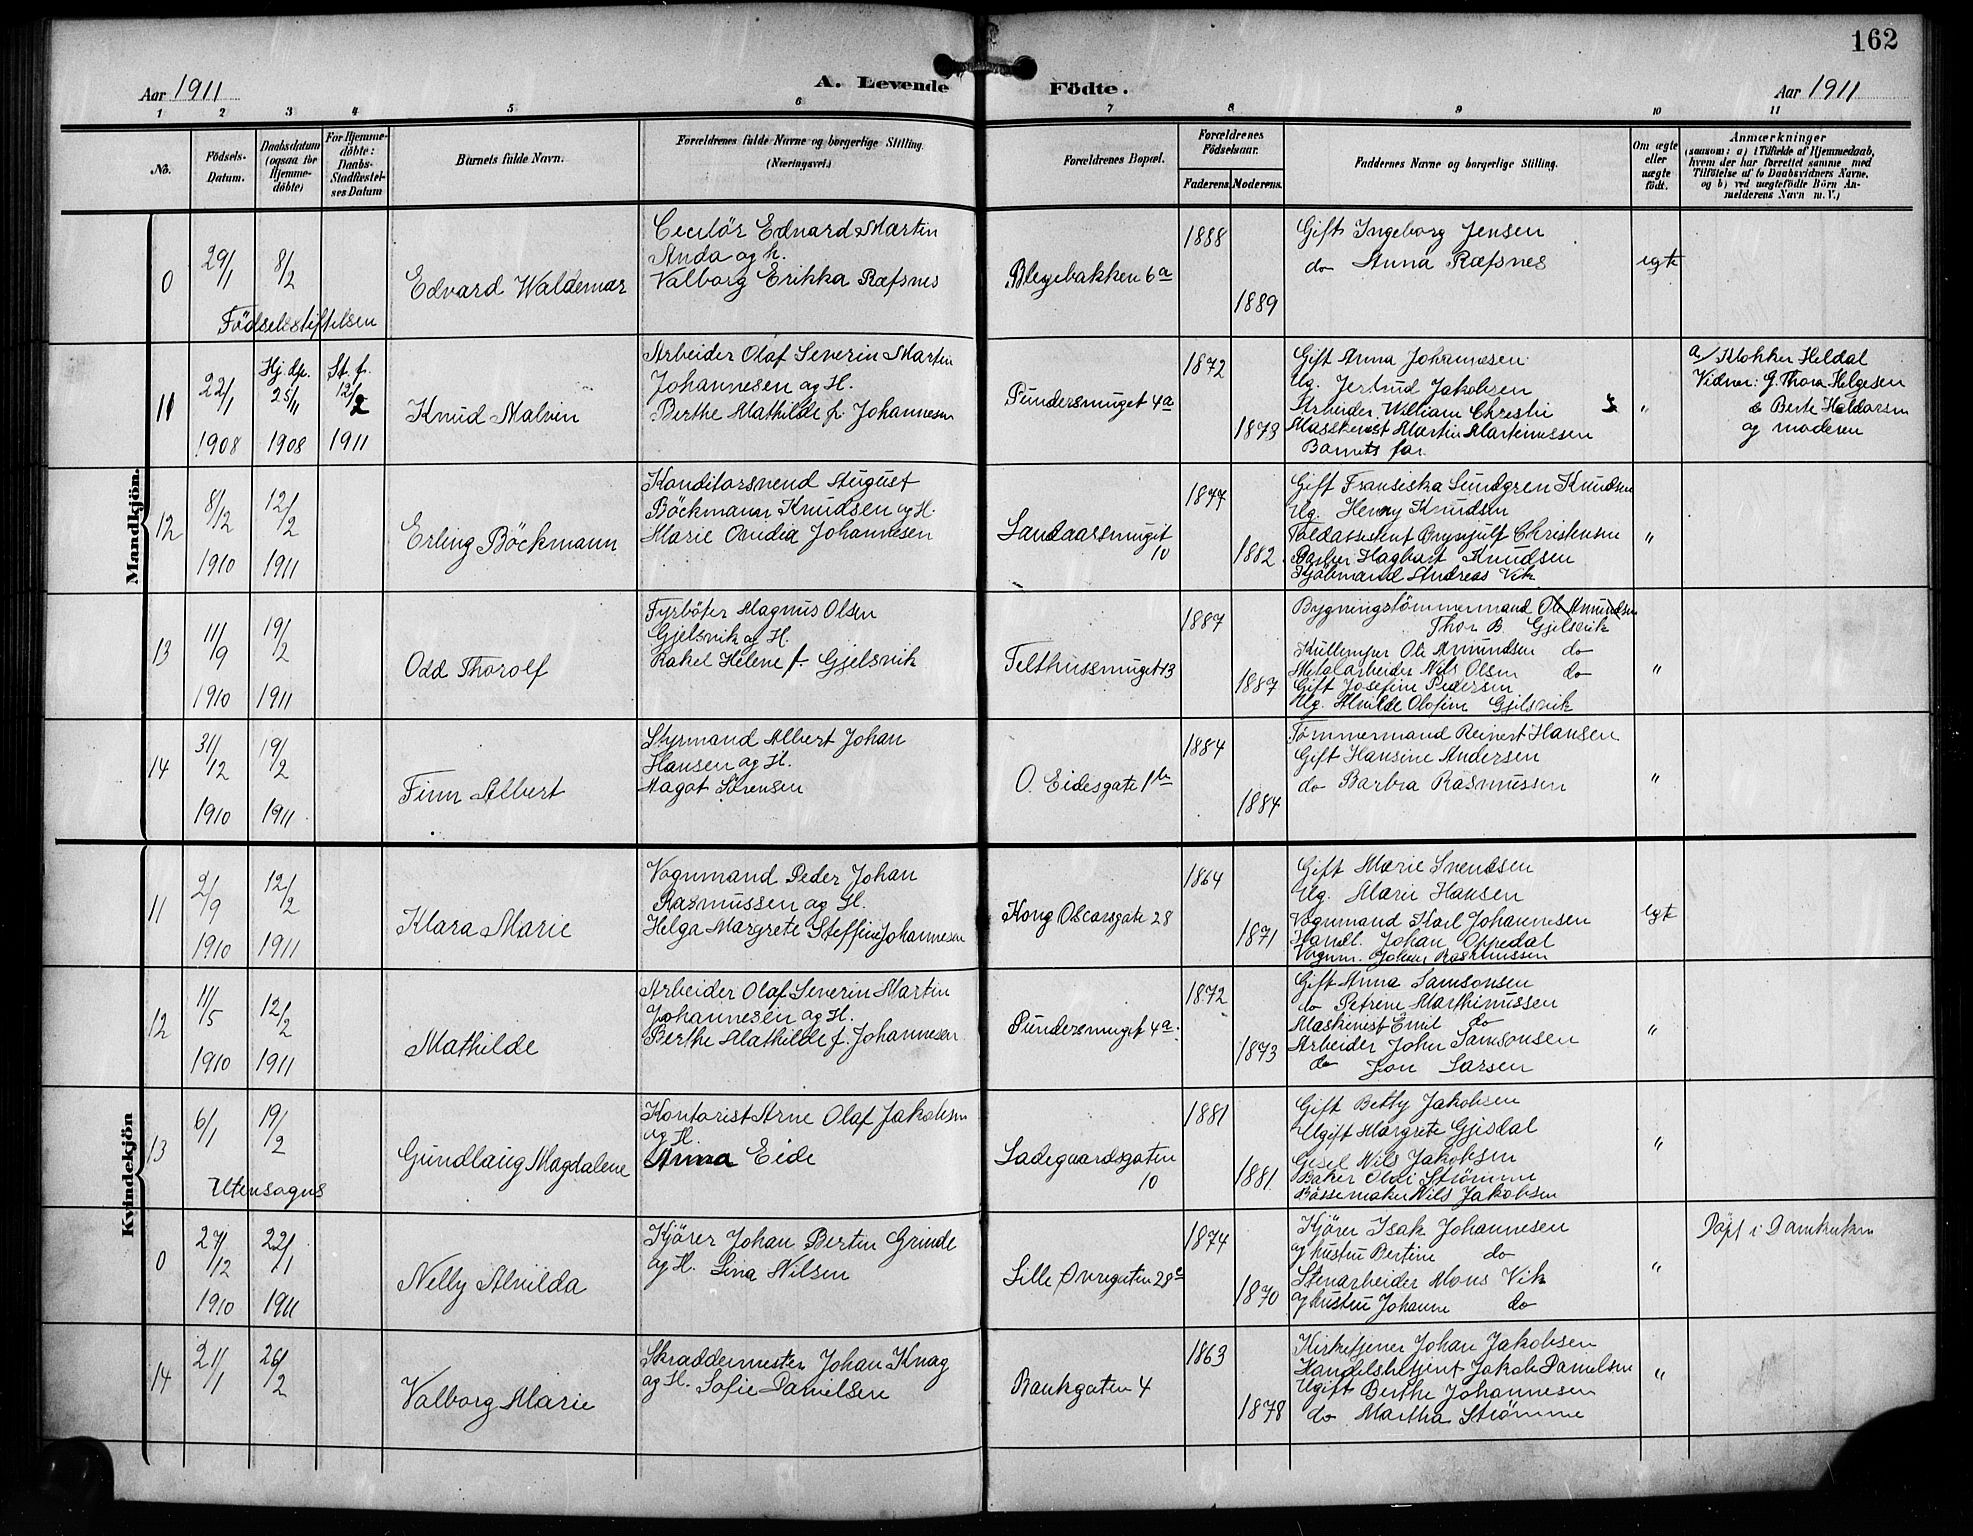 162
Aar 1911
A. Levende Födte.
Aar 1911
1 2 3 4 5 6 7 8 9 10 11
No.
Födsels-Datum.
Daabsdatum (ogsaa for Hjemme-döbte)
For Hjemme-döbte: Daabs-Stadfæstel-ses Datum
Barnets fulde Navn.
Forældrenes fulde Navne og borgerlige Stilling. (Næringsvei.)
Forældrenes Bopæl.
Forældrenes Födselsaar.
Faderens. Moderens.
Faddernes Navne og borgerlige Stilling.
Om ægte eller uægte födt.
Anmærkninger
(saasom: a) i Tilfælde af Hjemmedaab,
hvem der har forrettet samme med
Tilföielse af to Daabsvidners Navne.
og b) ved uægtefödte Börn An-
melderens Navn m. V.)
Mandkjön.
0 29/1 8/2
Födselsstiftelsen
Edvard Waldemar
Ciselör Edvard Martin
Anda og h.
Valborg Erikka Ræfsnes
Blegebakken 6a
1888
1889
Gift Ingeborg Jensen
do Anna Ræfsnes
egte
11 22/1 1908
Hj. dp. 25/11 1908
St. f. 12/2 1911
Knud Malvin
Arbeider Olaf Severin Martin
Johannesen og H.
Berthe Mathilde f. Johannesen
Pundersmuget 4a
1872
1873
Gift Anna Johannesen
Ug. Jertrud Jakobsen
Arbeider William Christie
Maskinist Martin Martinussen
Barnets far
"
a/ Klokker Heldal
Vidner: G. Thora Helgesen
do Berte Haldorsen
og moderen
12 8/12 1910 12/2 1911
Erling Böckmann
Konditorsvend August
Böckmann Knudsen og H.
Marie Ovidia Johannesen
Sandaassmuget 10
1877
1882
Gift Fransiska Sundgren Knudsen
Ug. Henny Knudsen
Toldassistent Christensen
Hagbart Knudsen
Andreas Vik
"
13 11/9 1910 19/2 1911
Odd Thorolf
Fyrböter Magnus Olsen
Gjelsvik og H.
Rakel Helene f. Gjelsvik
Telthussmuget 13
1887
1887
Bygningstömmermand Ole Amundsen
Thor B. Gjelsvik
Kullemper Ole Amundsen do
Metalarbeider Nils Olsen do
Gift Josefine Pedersen
Ug. Alvilde Olofine Gjelsvik
"
14 31/12 1910 19/2 1911
Finn Albert
Styrmand Albert Johan
Hansen og H.
Magot Sörensen
O. Eidesgate 1b
1884
1884
Tömmermand Reinert Hansen
Gift Hansine Andersen
do Barbra Rasmussen
"
Kvindekjön
11 2/9 1910 12/2 1911
Klara Marie
Vognmand Peder Johan
Rasmussen og H.
Helga Margrete Steffine Johannesen
Kong Oscarsgate 28
1864
1871
Gift Marie Svendsen
Ug. Marie Hansen
Vognmand Karl Johannesen
Handl. Johan Oppedal
Vognm. Johan Rasmussen
egte
12 11/5 1910 12/2 1911
Mathilde
Arbeider Olaf Severin Martin
Johannesen og H.
Berthe Mathilde f. Johannesen
Pundersmuget 4a.
1872
1873
Gift Anna Samsonsen
do Petrine Marthinussen
Maskinist Emil do
Arbeider John Samsonsen
do Jon Larsen
"
13 6/1 19/2
Utensogns
Gundlaug Magdalene
Kontorist Arne Olaf Jakobsen
og H.
Anna Eide
Ladegaardsgaten 10
1881
1881
Gift Betty Jakobsen
Ugift Margrete Gjisdal
Gesel Nils Jakobsen
Baker Oldi Strömme
Bössemaker Nils Jakobsen
"
0 27/12 1910 22/1 1911
Nelly Alvilda
Kjörer Johan Bertin Grinde
og H. Lina Nilsen
Lille Övregaten 28c
1874
1870
Kjörer Isak Johannesen
og hustru Bertine do
Stenarbeider Mons Vik
og hustru Johanne do
"
Döpt i Domkirken
14 21/1 26/2
Valborg Marie
Skraddermester Johan Knag
og H. Sofie Danielsen
Bankgaten 4
1863
1878
Kirketjener Johan Jakobsen
Handelsbetjent Jakob Danielsen
Ugift Berthe Johannesen
do Martha Strömme
"